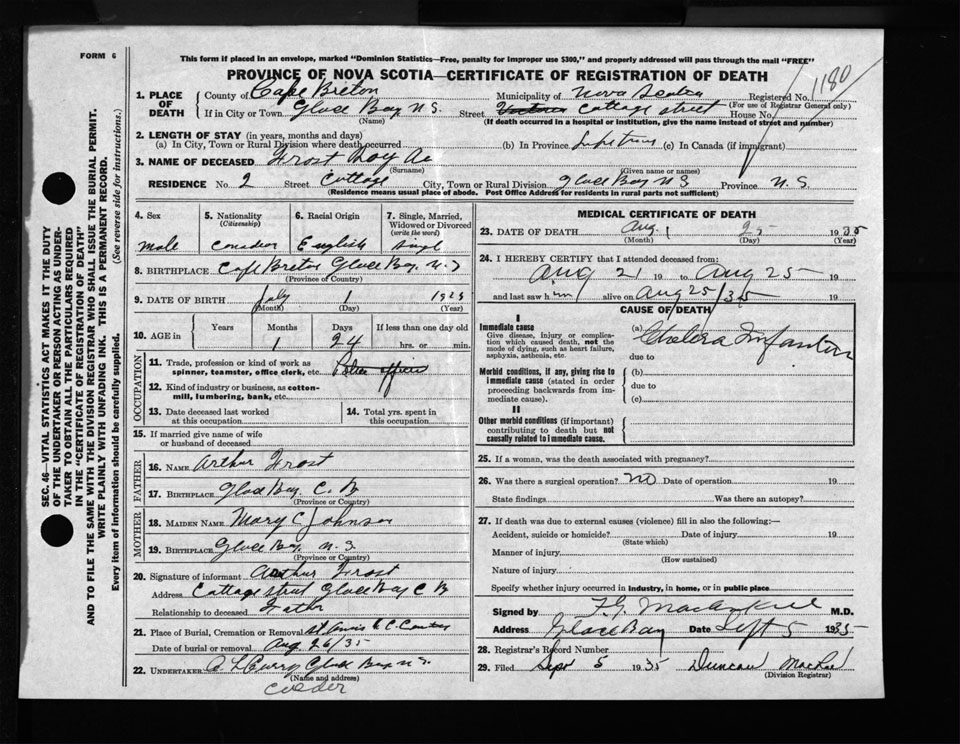 FORM 6
This form if placed in an envelope, marked "Dominion Statistics—Free, penalty for improper use $300," and properly addressed will pass through the mail "FREE"
PROVINCE OF NOVA SCOTIA—CERTIFICATE OF REGISTRATION OF DEATH
1180
1. PLACE OF DEATH
County of Cape Breton Municipality of Nova Scotia Registered No.
(For use of Registrar General only)
If in City or Town Glace Bay N.S. Street Cottage street House No.
(Name) (If death occurred in a hospital or institution, give the name instead of street and number)
2. LENGTH OF STAY (in years, months and days)
(a) In City, Town or Rural Division where death occurred (b) In Province Life time (c) In Canada (if immigrant)
3. NAME OF DECEASED Frost
(Surname) (Given name or names)
RESIDENCE No. 2 Street Cottage City, Town or Rural Division Glace Bay N S Province N. S.
(Residence means usual place of abode. Post Office Address for residents in rural parts not sufficient)
4. Sex
male
5. Nationality
(Citizenship)
6. Racial Origin
English
7. Single, Married, Widowed or Divorced
(write the word)
Singl
8. BIRTHPLACE Cape Breton Glace Bay. N. S
(Province of Country)
9. DATE OF BIRTH July 1
(Month) (Day) (Year)
10. AGE in
Years Months Days If less than one day old
1 24 hrs. or min.
OCCUPATION
11. Trade, profession or kind of work as spinner, teamster, office clerk, etc.
12. Kind of industry or business, as cotton-mill, lumbering, bank, etc.
13. Date deceased last worked at this occupation
14. Total yrs. spent in this occupation
15. If married give name of wife or husband of deceased
FATHER
16. NAME Arthur Frost
17. BIRTHPLACE Glace Bay. C. B
(Province or Country)
MOTHER
18. MAIDEN NAME Mary C Johnson
19. BIRTHPLACE Glace Bay. N. S.
(Province or Country)
20. Signature of informant Arthur Frost
Address Cottage street Glace Bay C B
Relationship to deceased Father
21. Place of Burial, Cremation or Removal
Date of burial or removal Aug 26/35
22. UNDERTAKER Curry Glace Bay N S.
(Name and address)
MEDICAL CERTIFICATE OF DEATH
23. DATE OF DEATH Aug. 25 1935
(Month) (Day) (Year)
24. I HEREBY CERTIFY that I attended deceased from:
Aug 21 19 to Aug 25 19
and last saw him alive on Aug 25/35 19
CAUSE OF DEATH
I
Immediate cause
Give disease, injury or complication which caused death, not the mode of dying, such as heart failure, asphyxia, asthenia, etc.
(a) Cholera Infantum
due to
Morbid conditions, if any, giving rise to immediate cause (stated in order proceeding backwards from immediate cause).
(b)
due to
(c)
II
Other morbid conditions (if important) contributing to death but not causally related to immediate cause.
25. If a woman, was the death associated with pregnancy?
26. Was there a surgical operation? NO Date of operation 19
State findings Was there an autopsy?
27. If death was due to external causes (violence) fill in also the following:—
Accident, suicide or homicide? Date of injury 19
(State which)
Manner of injury
(How sustained)
Nature of injury
Specify whether injury occurred in industry, in home, or in public place
Signed by M.D.
Address Glace Bay Date Sept 5 1935
28. Registrar's Record Number
29. Filed Sept 5 1935 Duncan MacRae
(Division Registrar)
SEC. 46—VITAL STATISTICS ACT MAKES IT THE DUTY OF THE UNDERTAKER OR PERSON ACTING AS UNDERTAKER TO OBTAIN ALL THE PARTICULARS REQUIRED IN THE "CERTIFICATE OF REGISTRATION OF DEATH" AND TO FILE THE SAME WITH THE DIVISION REGISTRAR WHO SHALL ISSUE THE BURIAL PERMIT.
WRITE PLAINLY WITH UNFADING INK. THIS IS A PERMANENT RECORD.
Every item of information should be carefully supplied. (See reverse side for instructions.)